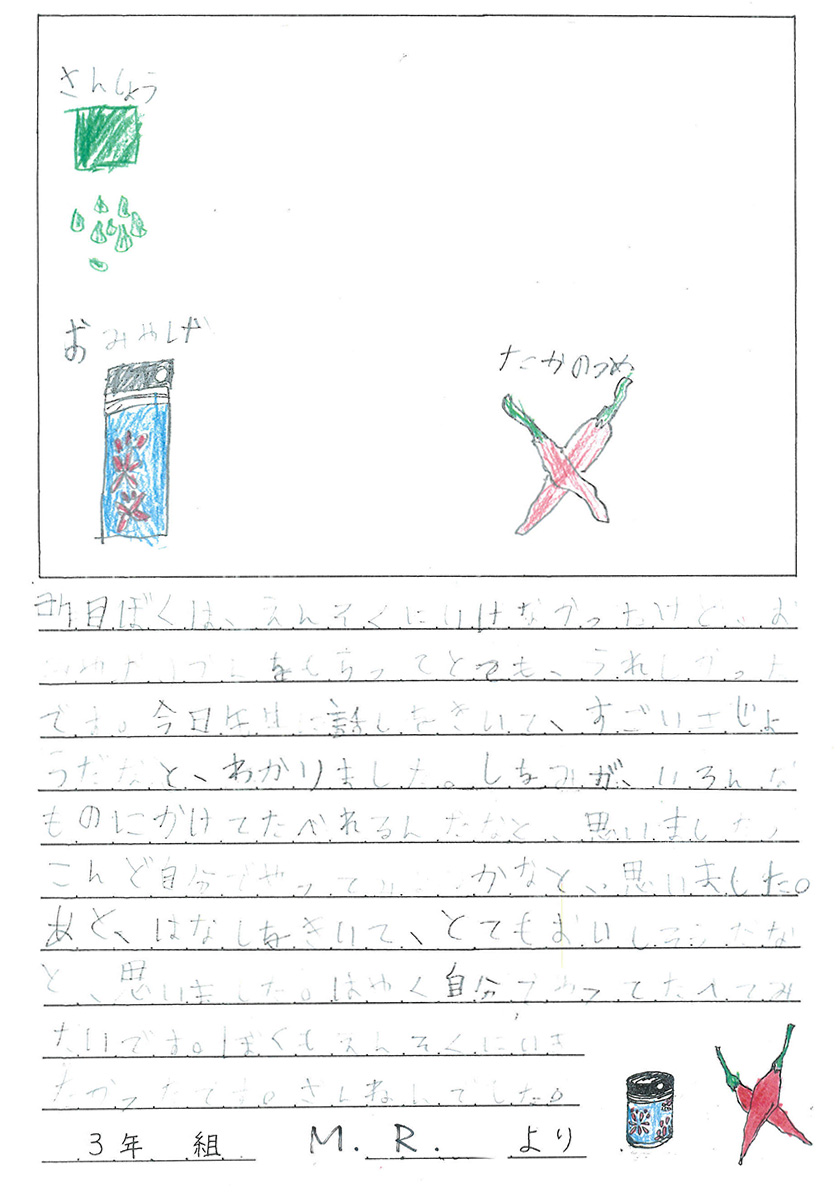 さんしょう
おみやげ
たかのつめ
昨日ぼくは、えんそくにいけなかったけど、お
をもらってとても、うれしかった
です。今日 話しをきいて、すごいぎじょ
うだなと、わかりました。しちみが、いろんな
ものにかけてたべれるんだなと、思いました。
こんど自分でやって かなと、思いました。
あと、はなしをきいて、とてもおいしそうだな
と、思いました。はやく自分で って たべてみ
たいです。ぼくもえんそくにいき
たかったです。ざんねんでした。
3年 組 M. R. より